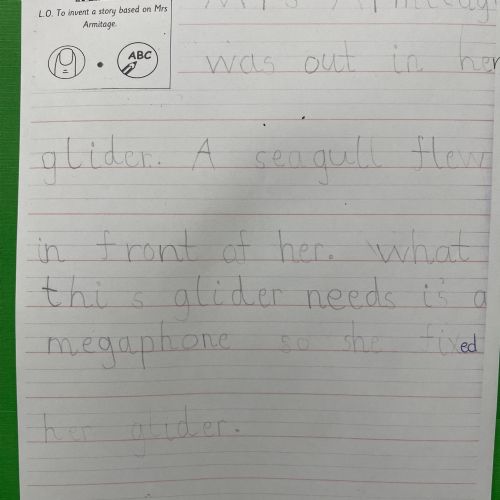 L.O. To invent a story based on Mrs
Armitage.
ABC
Mrs Armitage
was out in her
glider. A seagull flew
in front of her. What
this glider needs is a
megaphone so she fixed
her glider.